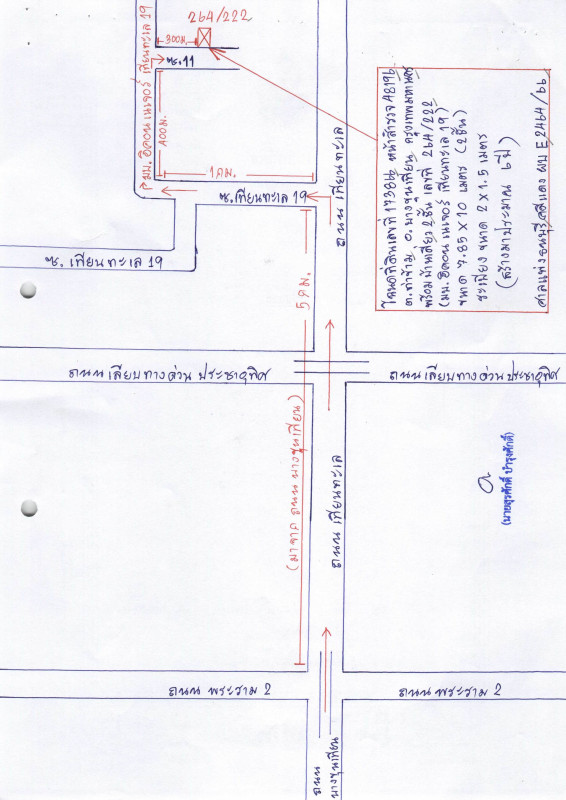 264/222
300 ม.
ซ.11
400 ม.
มบ. อิคอนเนเจอร์ เทียนทะเล 19
1 กม.
ซ. เทียนทะเล 19
ซ. เทียนทะเล 19
ถนน เทียนทะเล
5 กม.
โฉนดที่ดินเลขที่ 17386 หน้าสำรวจ A8196
ต. ท่าข้าม อ. บางขุนเทียน กรุงเทพมหานคร
พร้อมบ้านเดี่ยว 2 ชั้น เลขที่ 264/222
(มบ. อิคอนเนเจอร์ เทียนทะเล 19)
ขนาด 7.85 X 10 เมตร (2ชั้น)
ระเบียง ขนาด 2 X 1.5 เมตร
(สร้างมาประมาณ 6 ปี)
ศาลแพ่งธนบุรี คดีแดง ผบ E 2464/66
ถนน เลียบทางด่วน ประชาอุทิศ
ถนน เลียบทางด่วน ประชาอุทิศ
(มาจาก ถนน บางขุนเทียน)
ถนน เทียนทะเล
(นายสุรศักดิ์ บำรุงศักดิ์)
ถนน พระราม 2
ถนน พระราม 2
ถนน
บางขุนเทียน